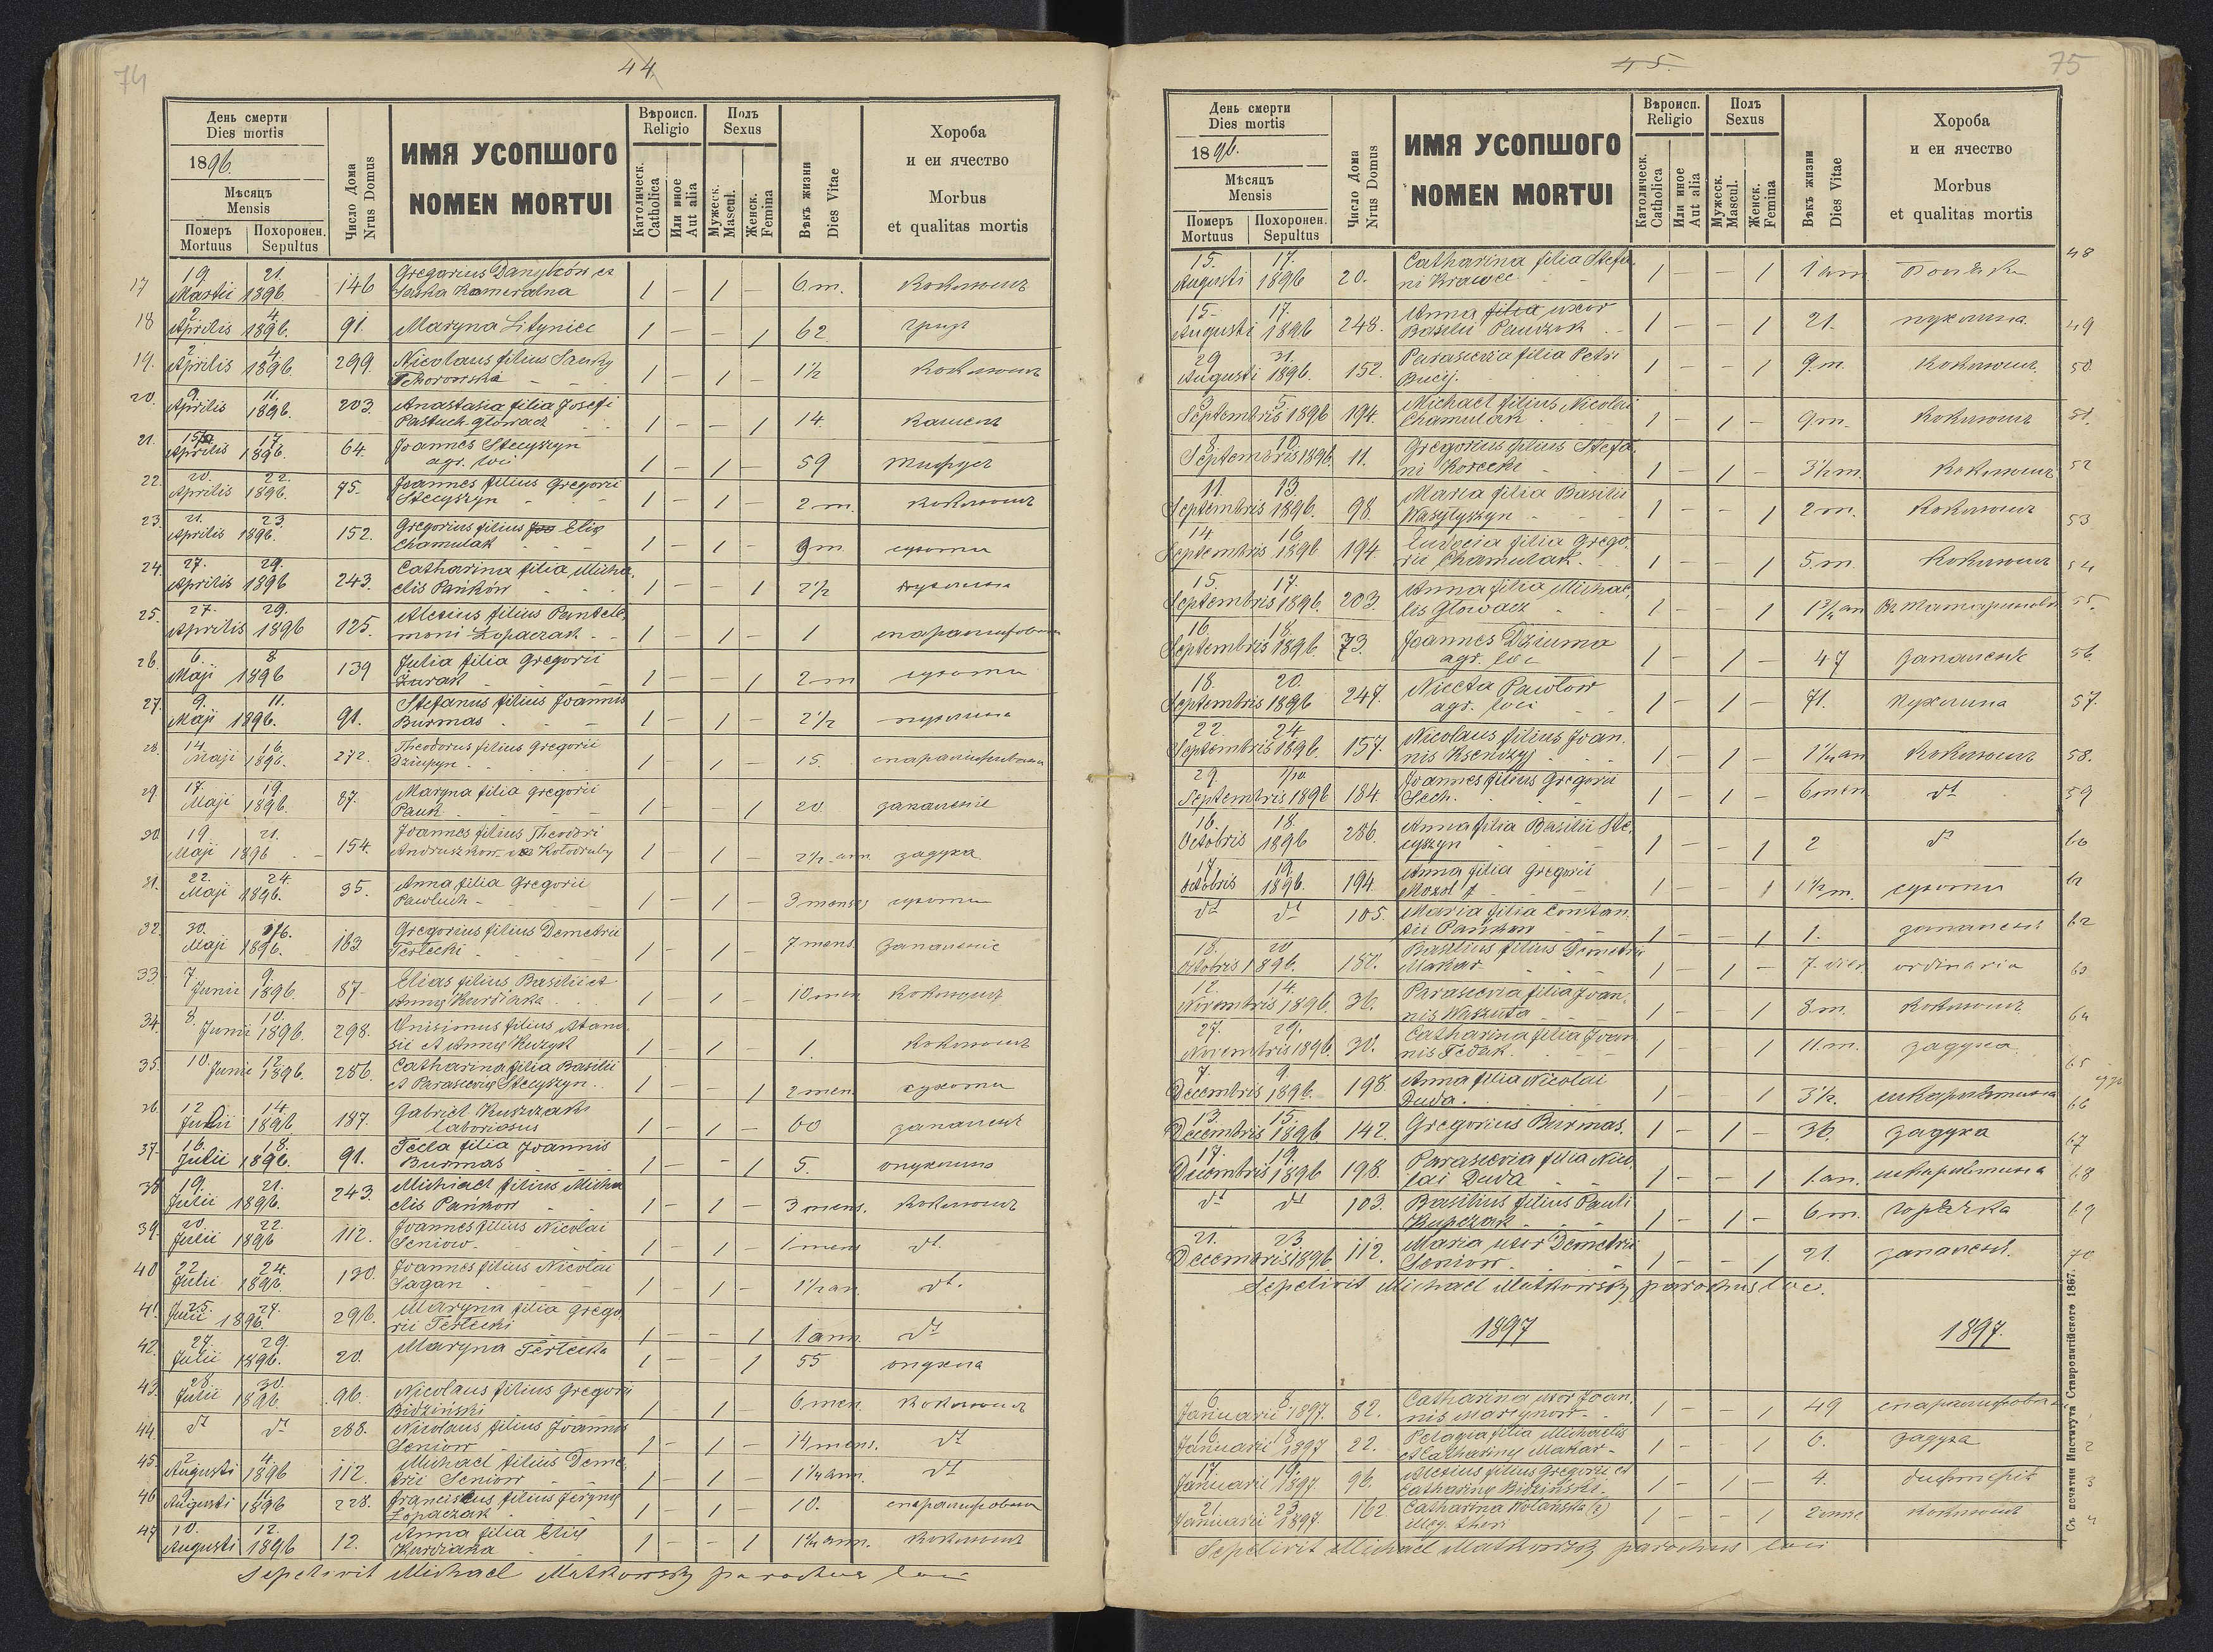 74
44
День смерти
Dies mortis
1896.
Мѣсяцъ
Mensis
Померъ
Mortuus
Похоронен.
Sepultus
Число Дома
Nrus Domus
ИМЯ УСОПШОГО
NOMEN MORTUI
Вѣроисп.
Religio
Католическ.
Catholica
Или иное
Aut alia
Полъ
Sexus
Мужеск.
Mascul.
Женск.
Femina
Вѣкъ жизни
Dies Vitae
Хороба
и еи ячество
Morbus
et qualitas mortis
17 19 21. Gregorius Danylców ex
Martii 1896 146 Kameralna 1 - 1 - 6.m. коклюшъ
18 2. 4.
Aprilis 1896. 91. Maryna Litynicc 1 - - 1 62
19. 2. 4. Nicolaus filius Sanky
Aprilis 1896. 299. Tchorowska 1 - 1 - 1½ коклюшъ
20. 9. 11. Anastasia filia Josefi
Aprilis 1896. 203. Pastuch-Głowacz 1 - - 1 14. кашель
21. 17. Joannes Stecyszyn
Aprilis 1896. 64. agr. loci 1 - 1 - 59 тифусъ
22. 20. 22. Joannes filius Gregorii
Aprilis 1896. 75. Stecyszyn 1 - 1 - 2 m. коклюшъ
23. 21. 23. Gregorius filius Eliae
Aprilis 1896. 152. Chamulak 1 - 1 - 9 m. сухоты
24. 27. 29. Catharina filia Micha-
Aprilis 1896 243. elis Pańków 1 - - 1 2½ пухлина
25. 27. 29. Alexius filius Pantele-
Aprilis 1896 125. moni Łopaczak 1 - 1 - 1 спаралижована
26. 6. 8. Julia filia Gregorii
Maji 1896 139 Żurak 1 - - 1 2 m сухоты
27. 9. 11. Stefanus filius Joannis
Maji 1896. 91. Burmas 1 - 1 - 2½ пухлина
28. 14. 16. Theodorus filius Gregorii
Maji 1896. 272. Dziupyn 1 - 1 - 15. спаралижована
29. 17. 19. Maryna filia Gregorii
Maji 1896. 87. Pauk 1 - - 1 20 запаленіе
30. 19. 21. Joannes filius Theodori
Maji 1896 154. Andruszkow Kołodruby 1 - 1 - 2½ ann задуха
31. 22. 24. Anna filia Gregorii
Maji 1896. 35. Pawluch 1 - 1 - 3 menses сухоты
32. 30. 1/6. Gregorius filius Demetrii
Maji 1896. 163. Terlecki 1 - 1 - 7 mens. запаленіе
33. 7. 9. Elias filius Basilii et
Junii 1896. 87. Annae Kurdiaka 1 - 1 - 10 men коклюшъ
34. 8. 10. Onisimus filius Atana-
Junii 1896. 298. sii et Annae Kuzyk 1 - 1 - 1. коклюшъ
35. 10. 12. Catharina filia Basilii
Junii 1896. 286. et Parasceviae Stecyszyn 1 - - 1 2 men. сухоты
36. 12 14. Gabriel Kuszczak
1896 187. laboriosus 1 - 1 - 60 запаленіе
37. 16. 18. Tecla filia Joannis
Julii 1896. 91. Burmas 1 - - 1 5. опухлина
38. 19. 21. Michael filius Micha
Julii 1896. 243. elis Pańkow 1 - 1 - 3 mens. коклюшъ
39. 20. 22. Joannes filius Nicolai
Julii 1896 112. Seniow 1 - 1 - 1 mens dt.
40 22 24. Joannes filius Nicolai
Julii 1896. 130. Jagan 1 - 1 - 1½ an dt.
41. 25. 27. Maryna filia Grego-
Julii 1896. 296. rii Terlecki 1 - - 1 1 ann. dt
42. 27. 29. Maryna Terlecka
Julii 1896. 20. 1 - - 1 55 опухла
43. 28. 30. Nicolaus filius Gregorii
Julii 1896 96. Bidziński 1 - 1 - 6 men. коклюшъ
44. dt dt 288. Nicolaus filius Joannis
Seniow 1 - 1 - 14 mens. dt
45. 2. 4. Michael filius Deme-
Augusti 1896 112. trii Seniow 1 - 1 - 1¼ ann. dt
46 9. 11. Franciscus filius
Augusti 1896 228. Łopaczak 1 - 1 - 10. спаралижована
47 10. 12. Anna filia Eliae
Augusti 1896 12. Kurdiaka 1 - - 1 1¼ ann. коклюшъ
Sepelivit Michael Matkowsky parochus loci
45.
75
День смерти
Dies mortis
1896.
Мѣсяцъ
Mensis
Померъ
Mortuus
Похоронен.
Sepultus
Число Дома
Nrus Domus
ИМЯ УСОПШОГО
NOMEN MORTUI
Вѣроисп.
Religio
Католическ.
Catholica
Или иное
Aut alia
Полъ
Sexus
Мужеск.
Mascul.
Женск.
Femina
Вѣкъ жизни
Dies Vitae
Хороба
и еи ячество
Morbus
et qualitas mortis
15. 17. Catharina filia Stefa- 48
Augusti 1896 20. ni Krawec 1 - - 1 1 ann
15. 17. Anna filia uxor
Augusti 1896 248. Basilii Pauczok 1 - - 1 21. пухлина. 49
29 31. Parascevia filia Petri
Augusti 1896. 152. Bucij. 1 - - 1 9.m. коклюшъ 50
3. 5. Michael filius Nicolai
Septembris 1896 194. Chamulak 1 - 1 - 9m. коклюшъ 51.
8. 10. Gregorius filius Stefa-
Septembris 1896. 11. ni Korecki 1 - 1 - 3½ m. коклюшъ 52
11. 13. Maria filia Basilii
Septembris 1896. 98. Wasylyszyn 1 - - 1 2 m. коклюшъ 53
14. 16. Eudocia filia Grego-
Septembris 1896 194. rii Chamulak. 1 - - 1 5.m. коклюшъ 54
15. 17. Anna filia Michae-
Septembris 1896. 203. lis Głowacz 1 - - 1 55.
16. 18. Joannes Dziuma
Septembris 1896. 73. agr. loc 1 - 1 - 47 запаленіе 56
18. 20. Nicetа Pawlow
Septembris 1896 247. agr. loci 1 - 1 - 71. пухлина 57.
22. 24 Nicolaus filius Joan-
Septembris 1896. 157. nis Ksenczyj 1 - 1 - 1¼ an коклюшъ 58.
29. 1/10 Joannes filius Gregorii
Septembris 1896 184. Lech. 1 - 1 - 6 men dt 59
16. 18. Anna filia Basilii Ste-
Octobris 1896 286. cyszyn 1 - - 1 2 dt 60
17 19. Anna filia Gregorii
Octobris 1896. 194. Mozol 1 - - 1 1½ m. сухоты 61
dt dt 105. Maria filia Constan-
tii Pańkow 1 - - 1 1. запаленіе 62
18. 20 Basilius filius Demetrii
Octobris 1896. 180. Makar 1 - 1 - 7. dies ordinaria 63
12. 14. Parascevia filia Joan-
Novembris 1896. 36. nis Waszuta 1 - - 1 8.m. коклюшъ 64
27. 29. Catharina filia Joan
Novembris 1896. 30. nis Fedak. 1 - - 1 11.m. задуха 65
7. 9. Anna filia Nicolai
Decembris 1896. 198 Duda. 1 - - 1 3½. шкарлятина 66
13. 15.
Decembris 1896 142. Gregorius Burmas. 1 - 1 - 36. задуха 67
17. 19. Parascevia filia Nico-
Decembris 1896 198. lai Duda 1 - - 1 1.an. шкарлятина 68
dt dt 103. Basilius filius Pauli
Kupczak 1 - 1 - 6 m. горячка 69
21. 23 Maria uxor Demetrii
Decembris 1896 112. Seniow. 1 - - 1 21. запаленіе. 70
Sepelivit Michael Matkowsky parochus loci.
1897 1897.
6. 8. Catharina uxor Joan-
Januarii 1897. 82. nis Martynow 1 - - 1 49 спаралижована
16. 18. Pelagia filia Michaelis
Januarii 1897 22. et Catharinae Makar 1 - - 1 6. задуха 2
17. 19. Alexius filius Gregorii et
Januarii 1897. 96. Catharinae Bidziński. 1 - 1 - 4. дифтерія 3
21. 23 Catharina Wolańska (?)
Januarii 1897. 162. illeg. thori 1 - - 1 2 mse коклюшъ 4
Sepelivit Michael Matkowsky parochus loci
Съ печатни Института Ставропигійского 1867.